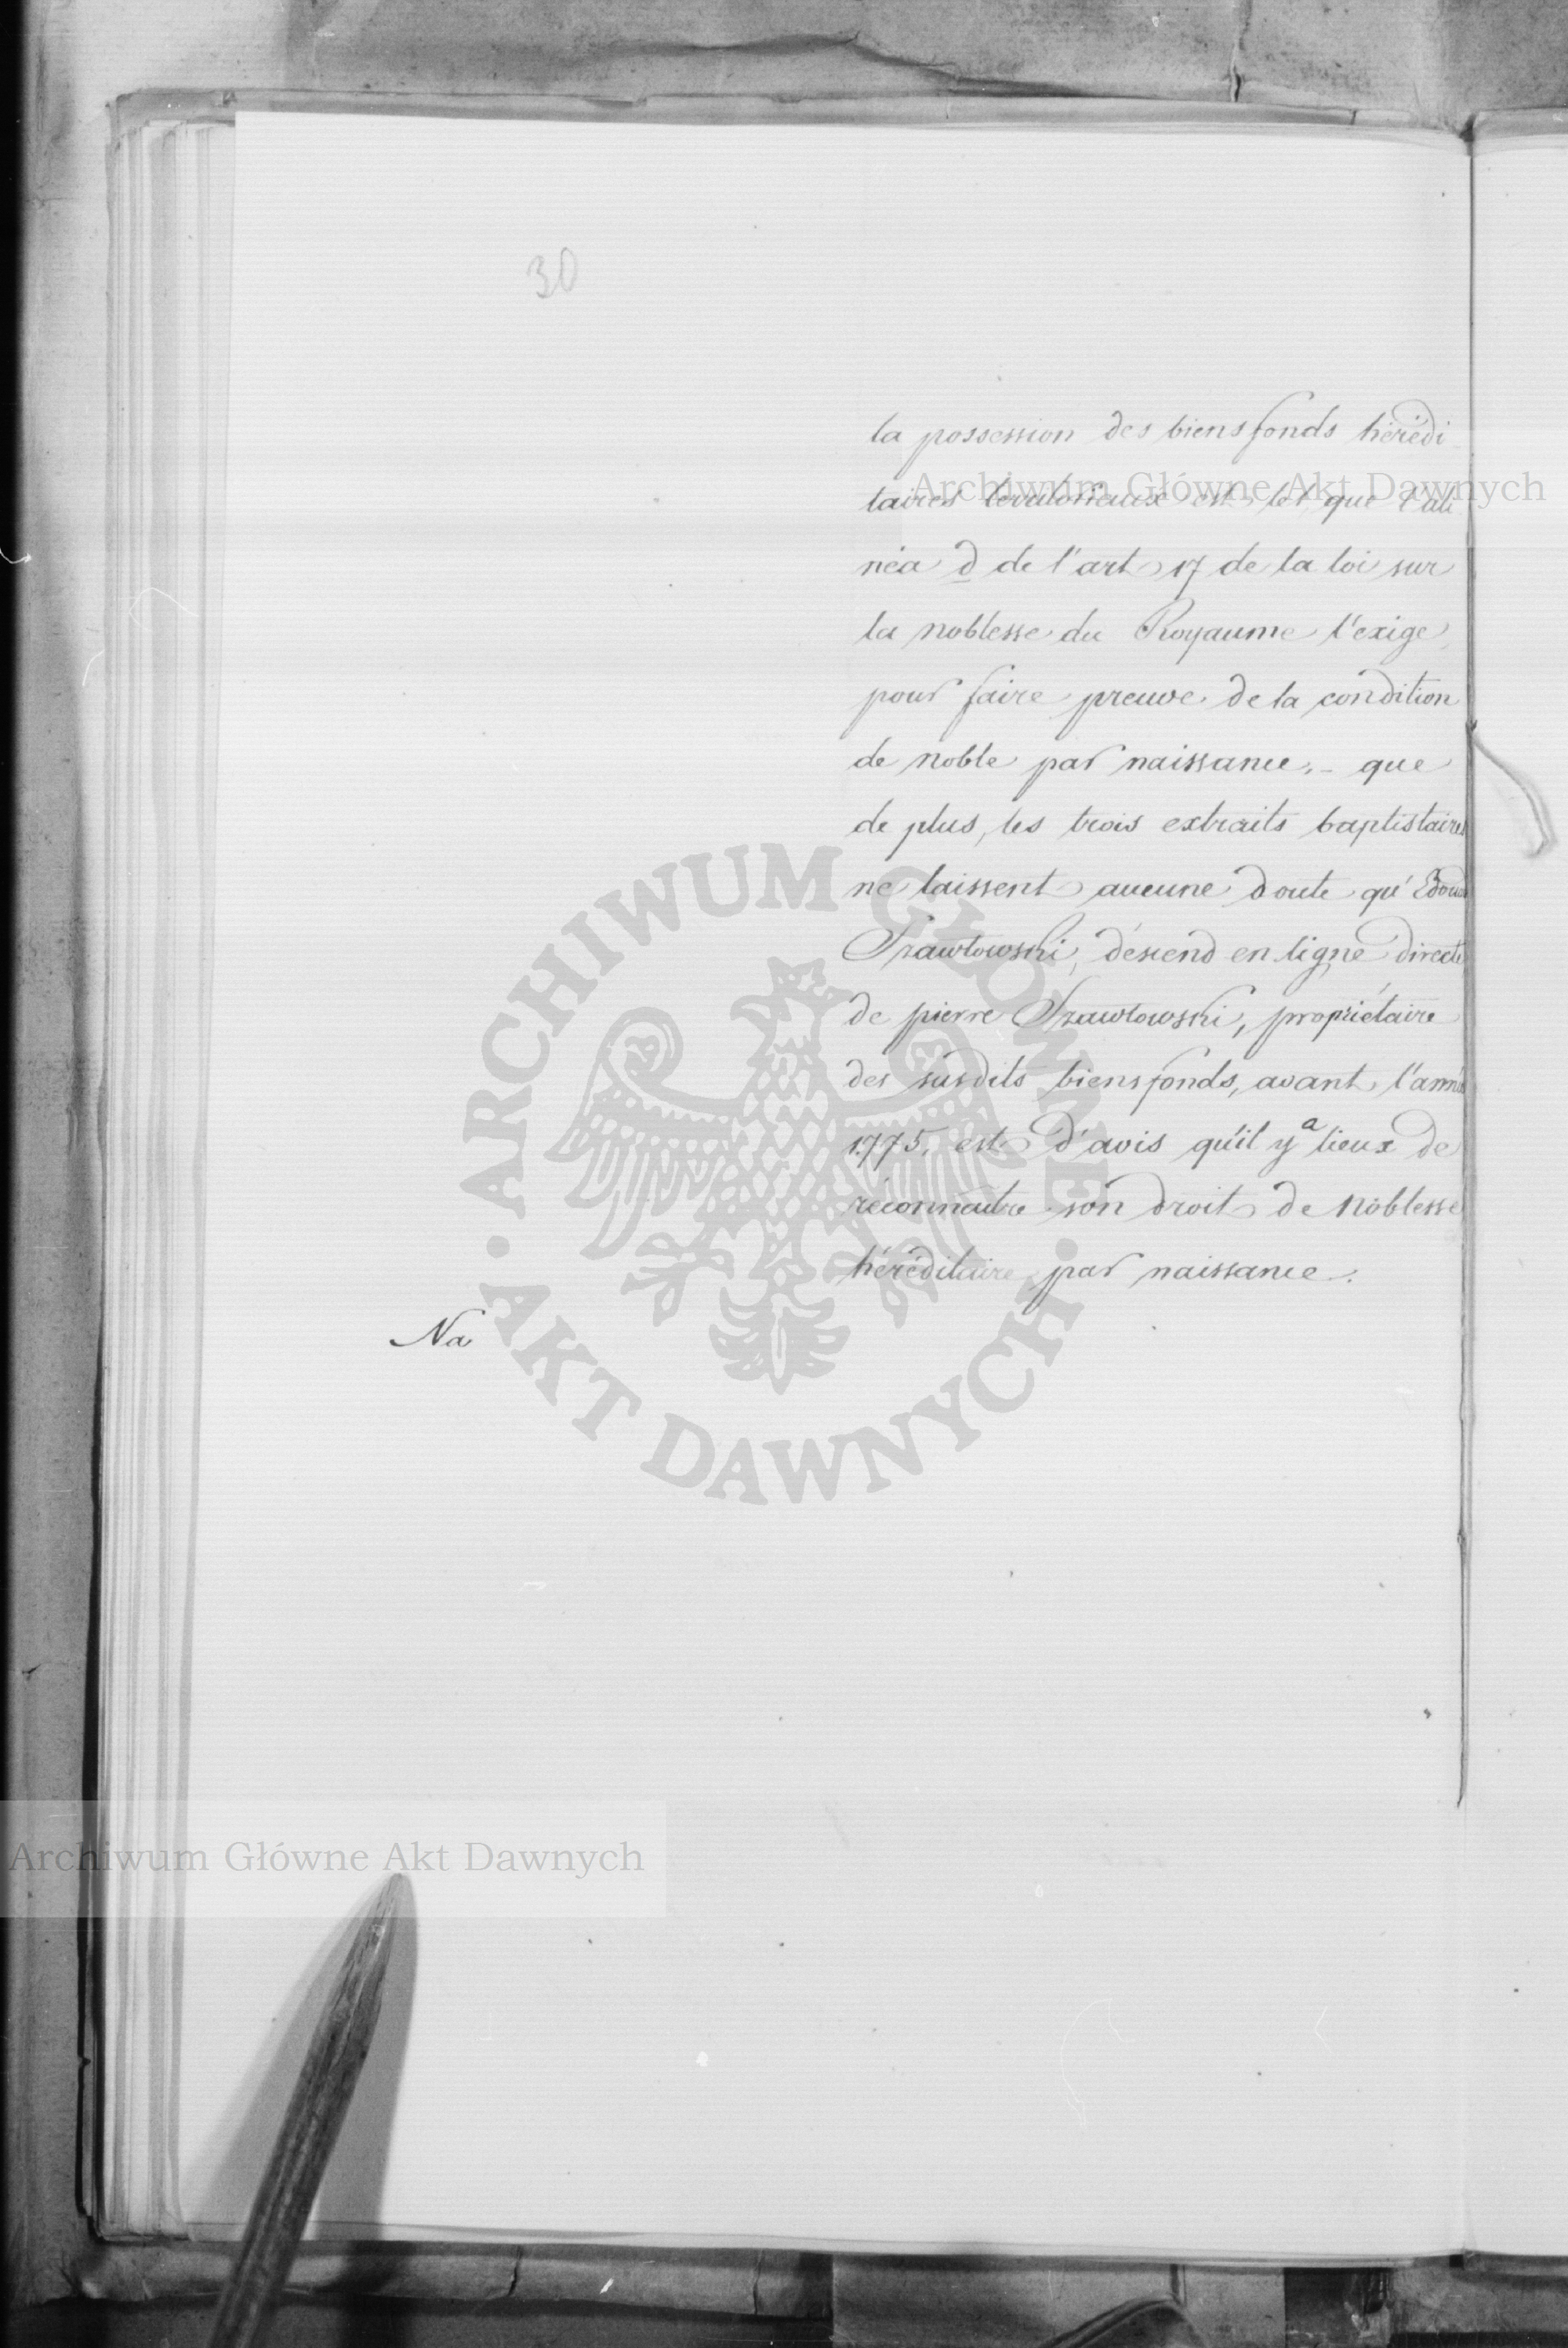 30
la possession des biens fonds hérédi
taires territoriaux est tel que l'ali
néa d de l'art 17 de la loi sur
la noblesse du Royaume l'exige,
pour faire preuve de la condition
de noble par naissance. - que
de plus, les trois extraits baptistaires
ne laissent aucune doute qu'Edouard
Szawłowski, déscend en ligne directe
de pierre Szawłowski, propriétaire
des susdits biens fonds, avant l'année
1775, est d'avis qu'il y a lieux de
réconnaître son droit de Noblesse
héréditaire par naissance.
Na
Archiwum Główne Akt Dawnych
ARCHIWUM GŁÓWNE · AKT DAWNYCH ·
Archiwum Główne Akt Dawnych